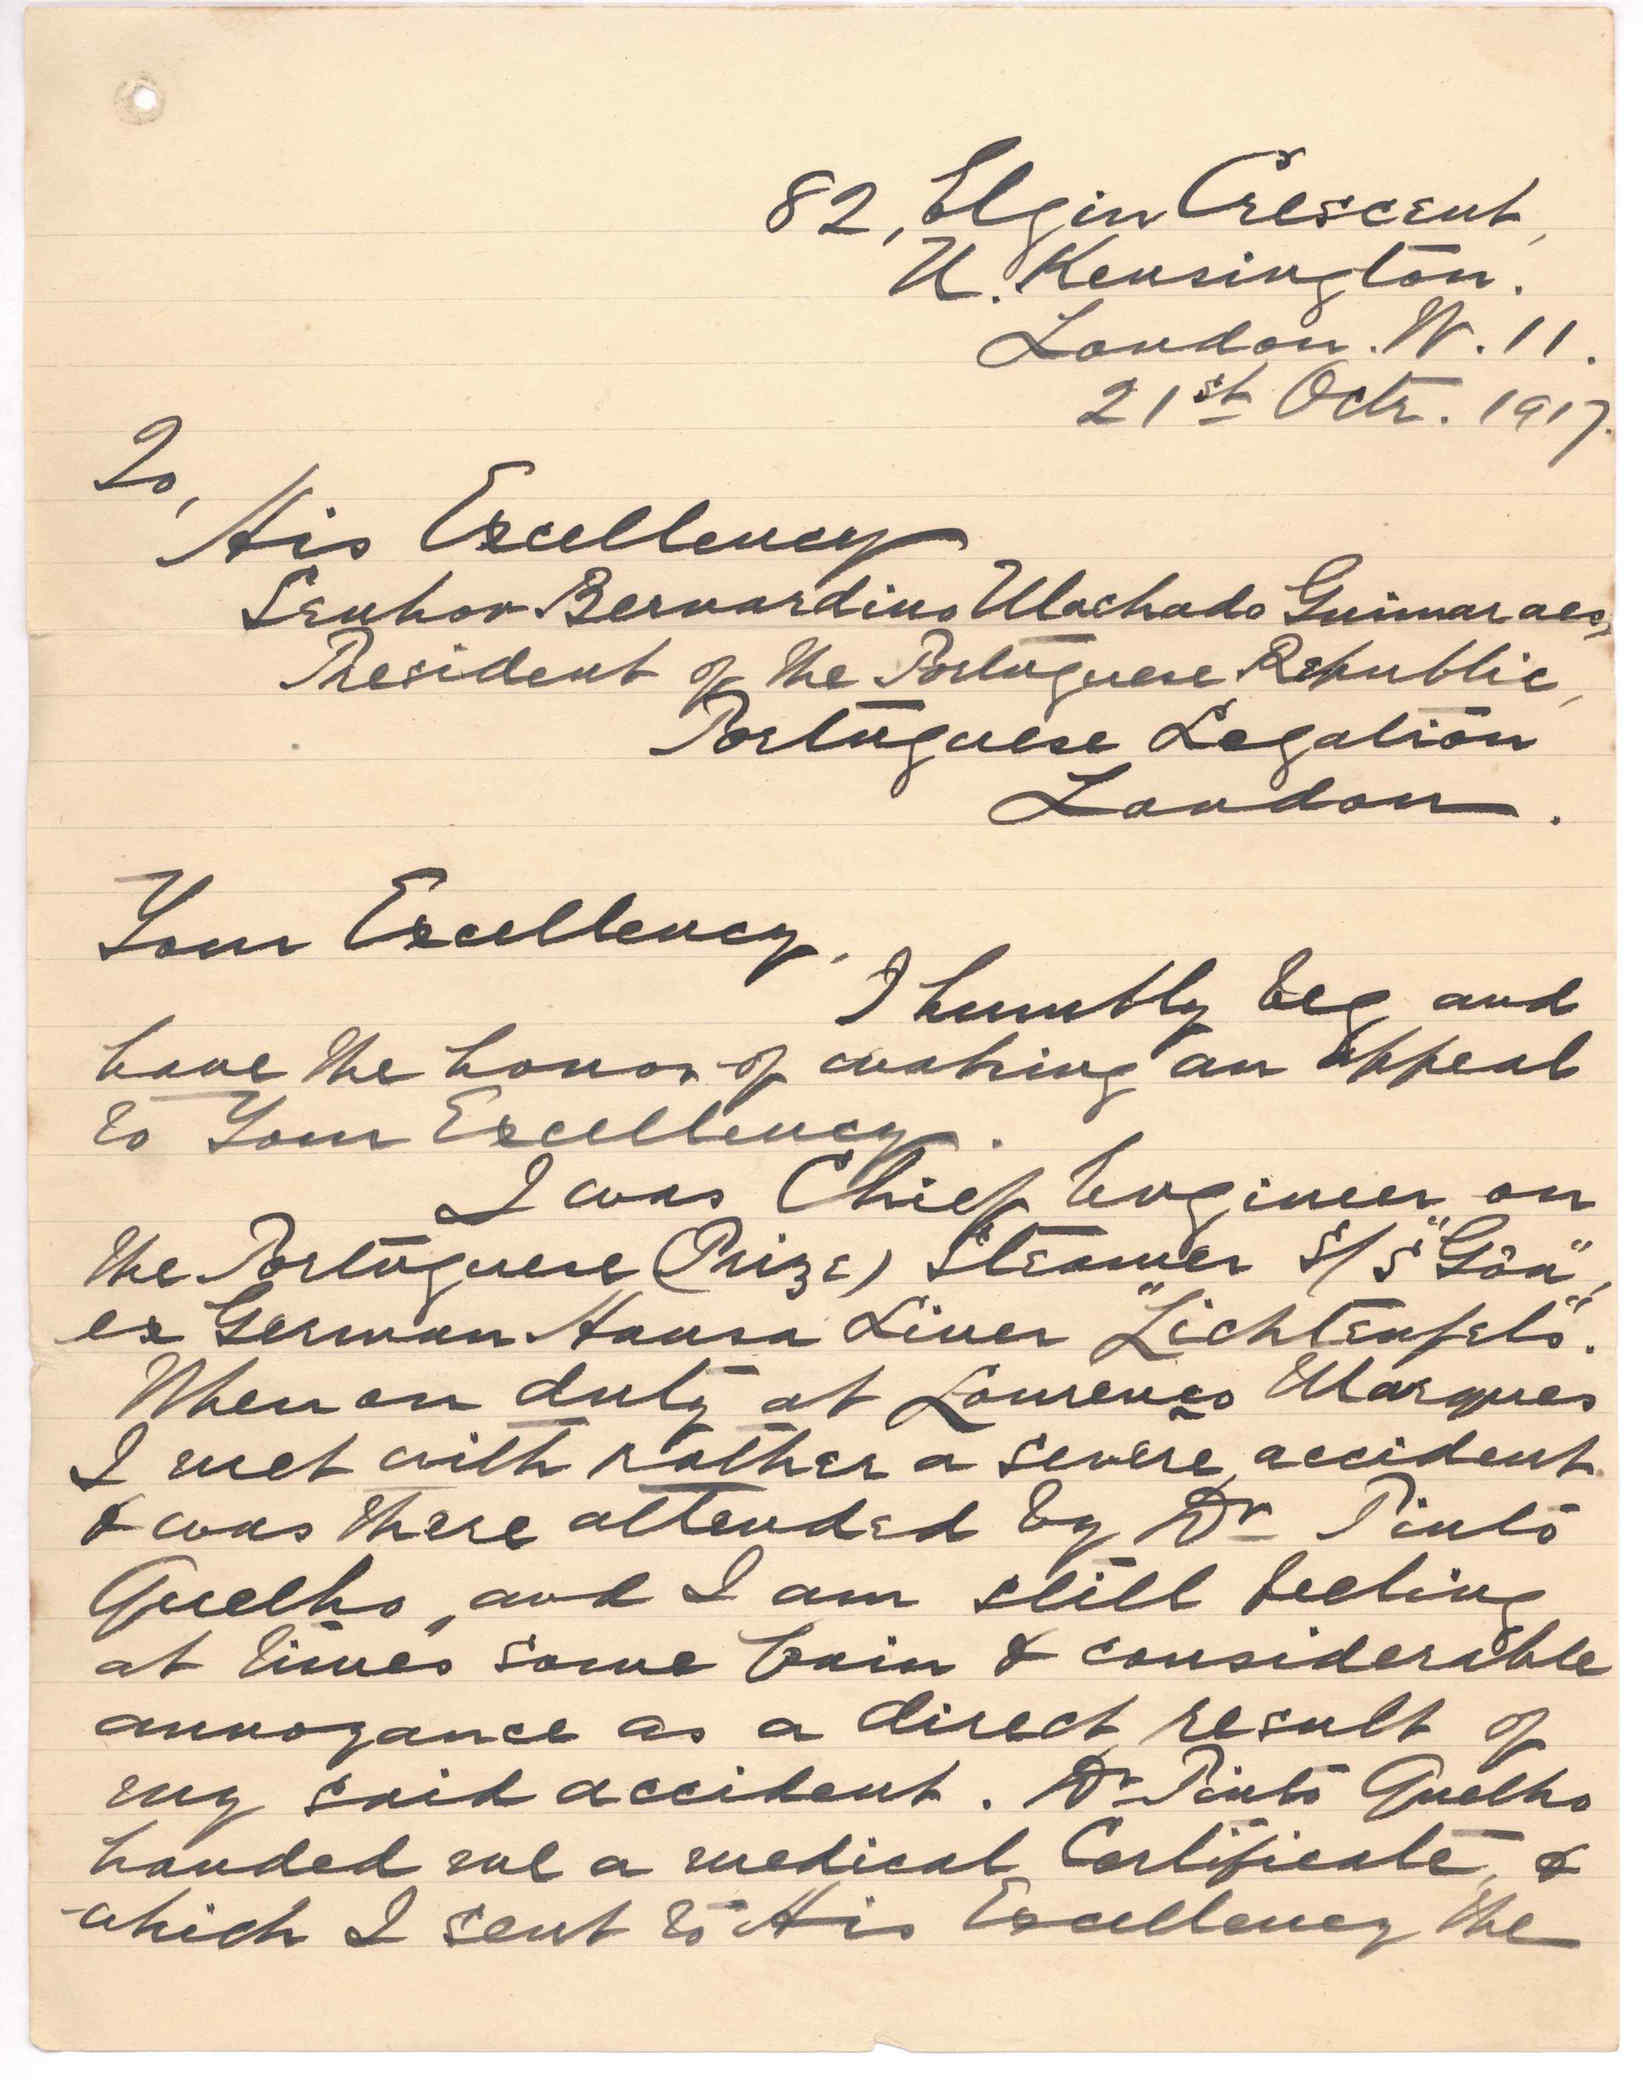 82, Elgin Crescent,
N. Kensington.
London. W. 11.
21st Octr. 1917.
To,
His Excellency
Senhor Bernardino Machado Guimaraes,
President of the Portuguese Republic,
Portuguese Legation
London.
Your Excellency,
I humbly beg and
have the honor of making an appeal
to Your Excellency.
I was Chief Engineer on
the Portuguese (Prize) Steamer S/S "Gôa",
ex German Hansa Liner "Lichtenfels".
When on duty at Lourenço Marques
I met with rather a severe accident
& was there attended by Dr Pinto
Quelho, and I am still feeling
at times some pain & considerable
annoyance as a direct result of
my said accident. Dr Pinto Quelho
handed me a medical Certificate, &
which I sent to His Excellency the